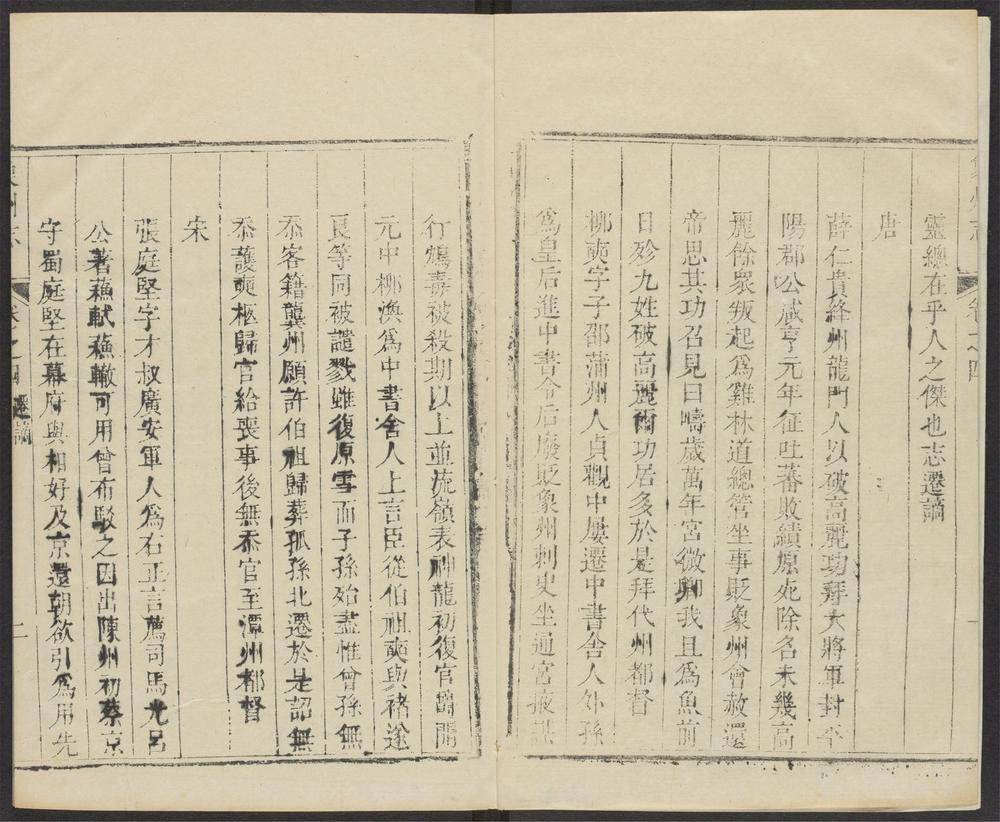 靈總在乎人之傑也志遷謫
唐
薛仁貴絳州龍門人以破高麗功拜大將軍封平
陽郡公咸亨元年征吐蕃敗績原死除名未幾高
麗餘衆叛起爲雞林道總管坐事貶象州會赦還
帝思其功召見曰疇歲萬年宮微卿我且爲魚前
日殄九姓破高麗爾功居多於是拜代州都督
柳奭字子邵蒲州人貞觀中屢遷中書舍人外孫
爲皇后進中書令后廢貶象州刺史坐通宮掖謀
行鴆毒被殺期以上並流嶺表神龍初復官爵開
元中柳渙爲中書舍人上言臣從伯祖奭與褚遂
良等同被譴戮雖復原雪而子孫殆盡惟曾孫無
忝客籍龔州願許伯祖歸葬孤孫北遷於是詔無
忝護奭柩歸官給喪事後無忝官至潭州都督
宋
張庭堅字才叔廣安軍人爲右正言薦司馬光呂
公著蘇軾蘇轍可用曾布駁之因出陳州初蔡京
守蜀庭堅在幕府與相好及京還朝欲引爲用先
卷之四 遷謫 二